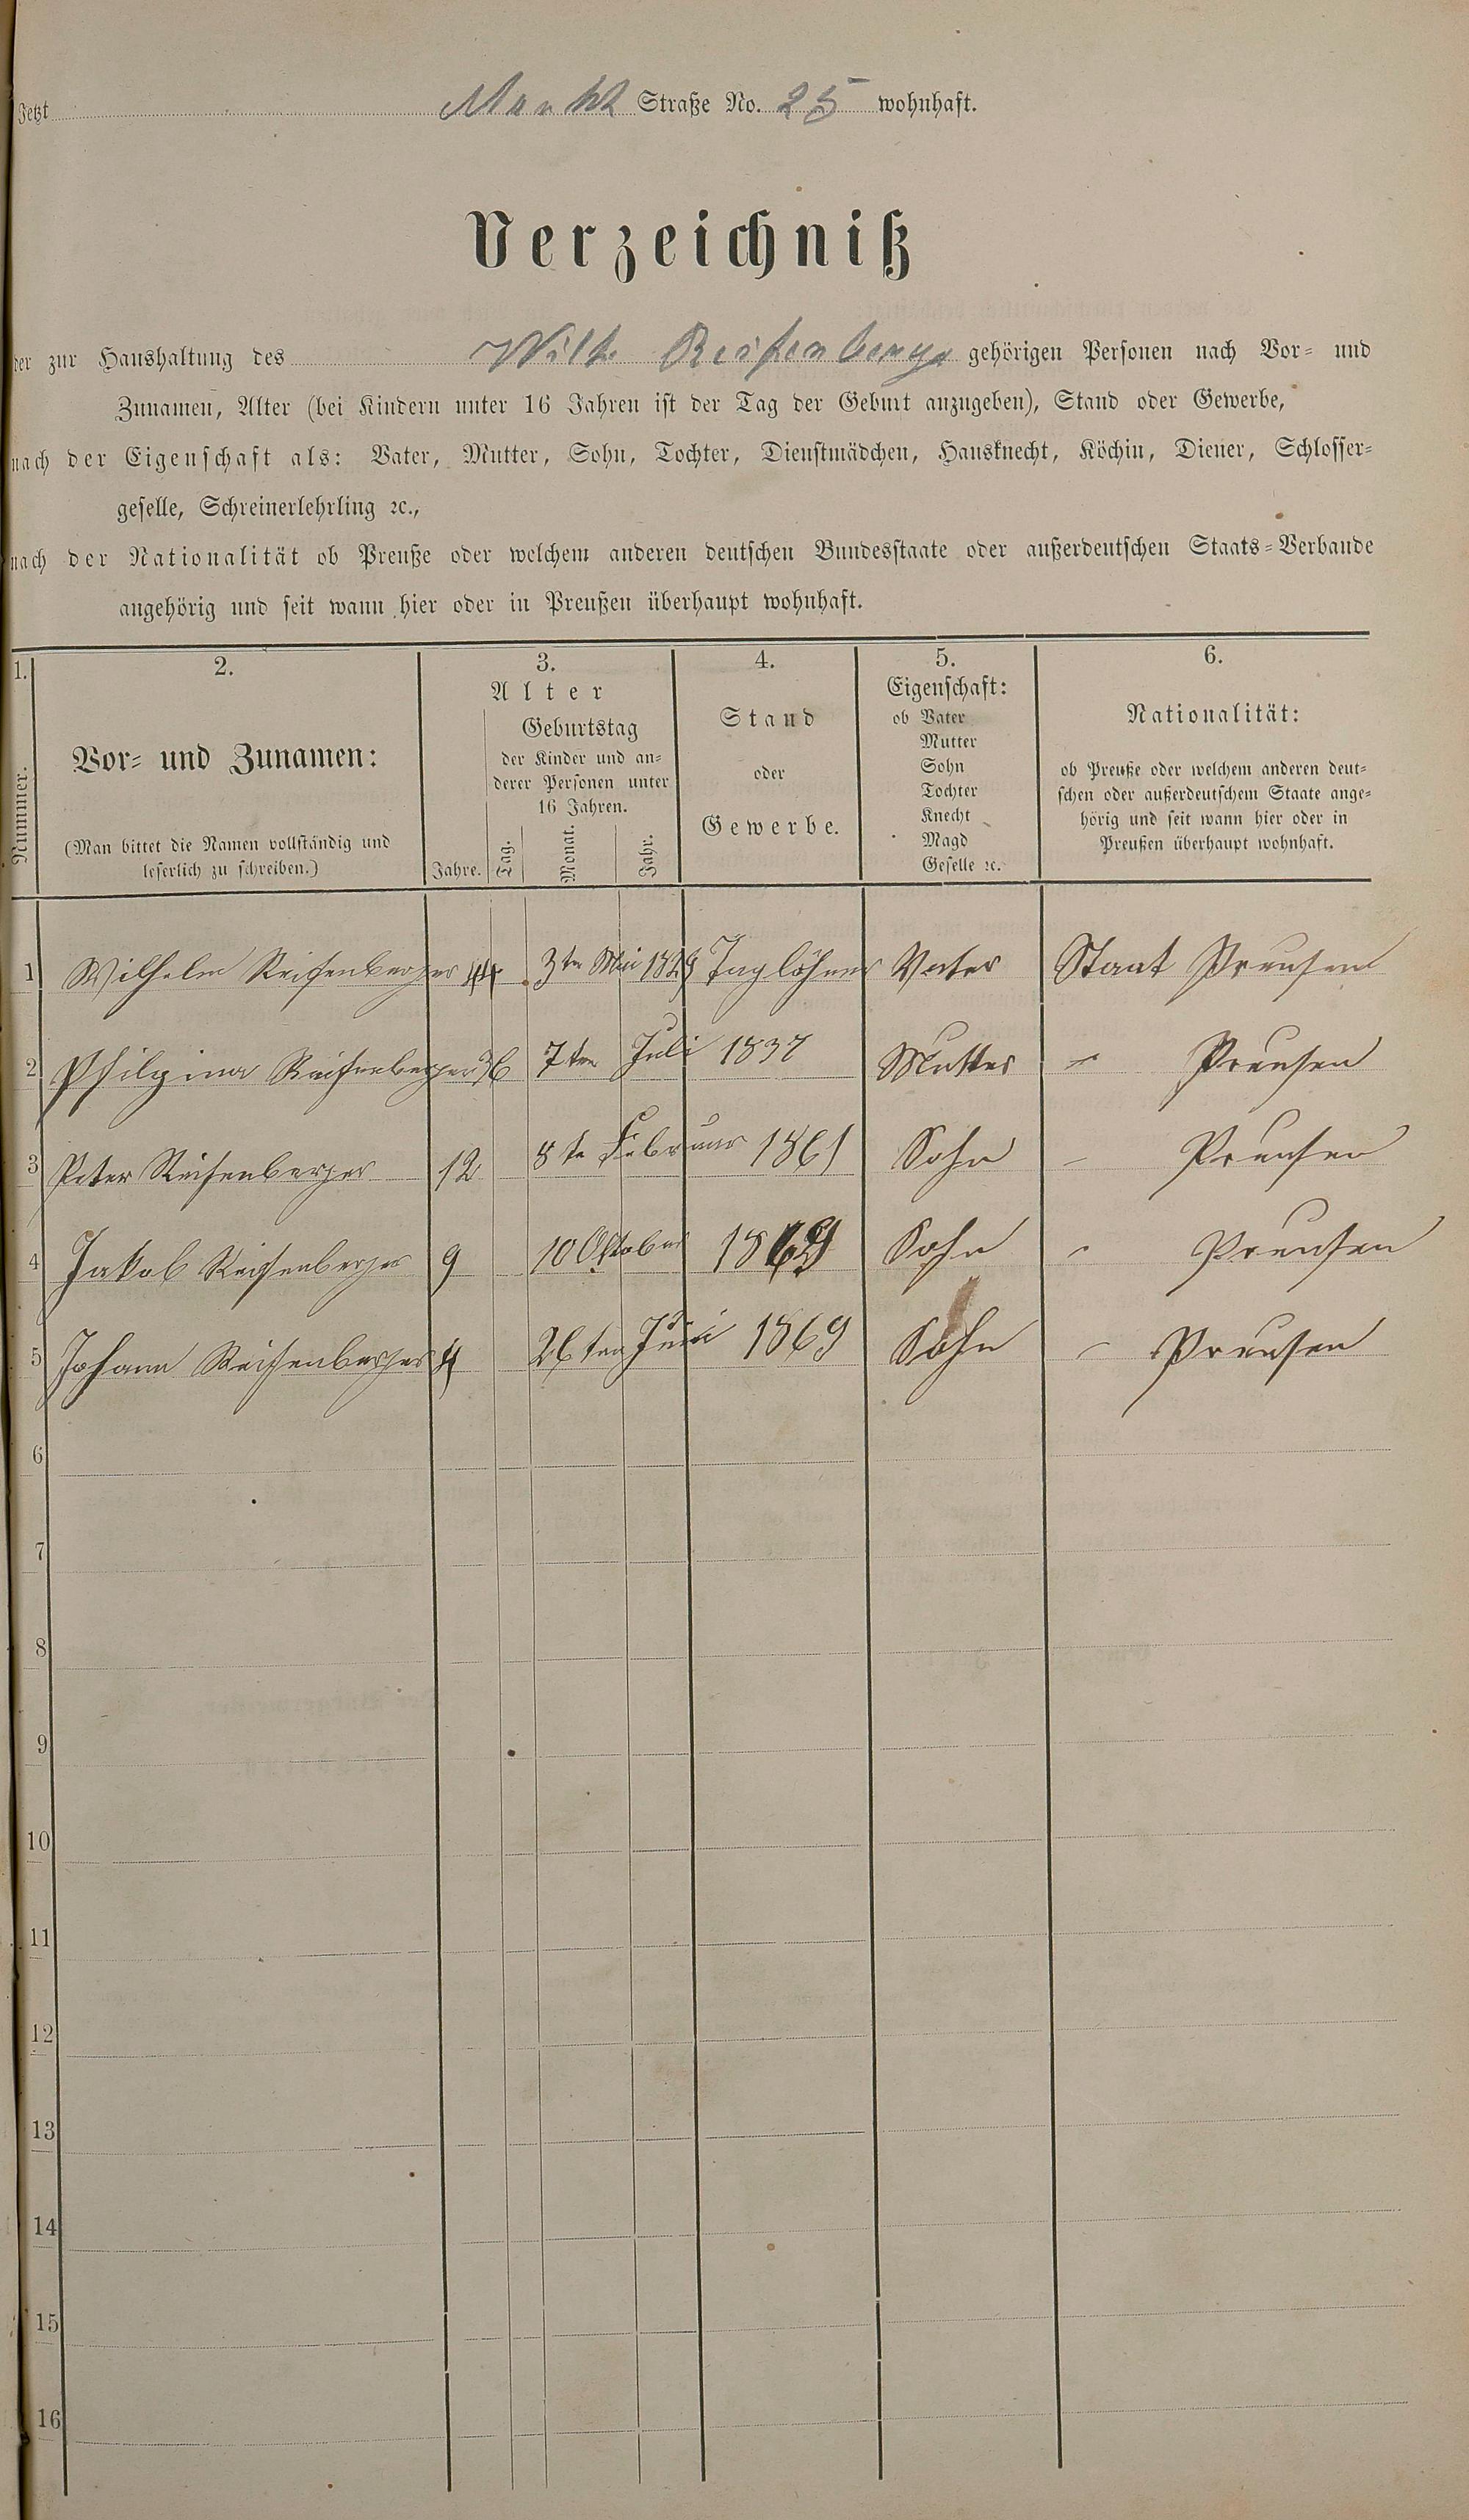 Jetzt Markt Straße No. 25 wohnhaft.
Verzeichniß
der zur Haushaltung des Wilh. Reifenberger gehörigen Personen nach Vor- und
Zunamen, Alter (bei Kindern unter 16 Jahren ist der Tag der Geburt anzugeben), Stand oder Gewerbe,
nach der Eigenschaft als: Vater, Mutter, Sohn, Tochter, Dienstmädchen, Hausknecht, Köchin, Diener, Schlosser-
geselle, Schreinerlehrling ꝛc.,
nach der Nationalität ob Preuße oder welchem anderen deutschen Bundesstaate oder außerdeutschen Staats-Verbande
angehörig und seit wann hier oder in Preußen überhaupt wohnhaft.
1. 2. 3. 4. 5. 6.
Nummer.
Vor- und Zunamen:
(Man bittet die Namen vollständig und
leserlich zu schreiben.)
Alter
Jahre.
Geburtstag
der Kinder und an-
derer Personen unter
16 Jahren.
Tag. Monat. Jahr.
Stand
oder
Gewerbe.
Eigenschaft:
ob Vater
Mutter
Sohn
Tochter
Knecht
Magd
Geselle ꝛc.
Nationalität:
ob Preuße oder welchem anderen deut-
schen oder außerdeutschem Staate ange-
hörig und seit wann hier oder in
Preußen überhaupt wohnhaft.
1 Wilhelm Reifenberger 44 3ten Mai 1829 Taglöhner Vater Staat Preusen
2 Philpina Reifenberger 36 7ten Juli 1837 Mutter " Preusen
3 Peter Reifenberger 12 8te Februar 1861 Sohn " Preusen
4 Jakob Reifenberger 9 10 Oktober Sohn " Preusen
5 Johann Reifenberger 4 26ten Juni 1869 Sohn " Preusen
6
7
8
9
10
11
12
13
14
15
16